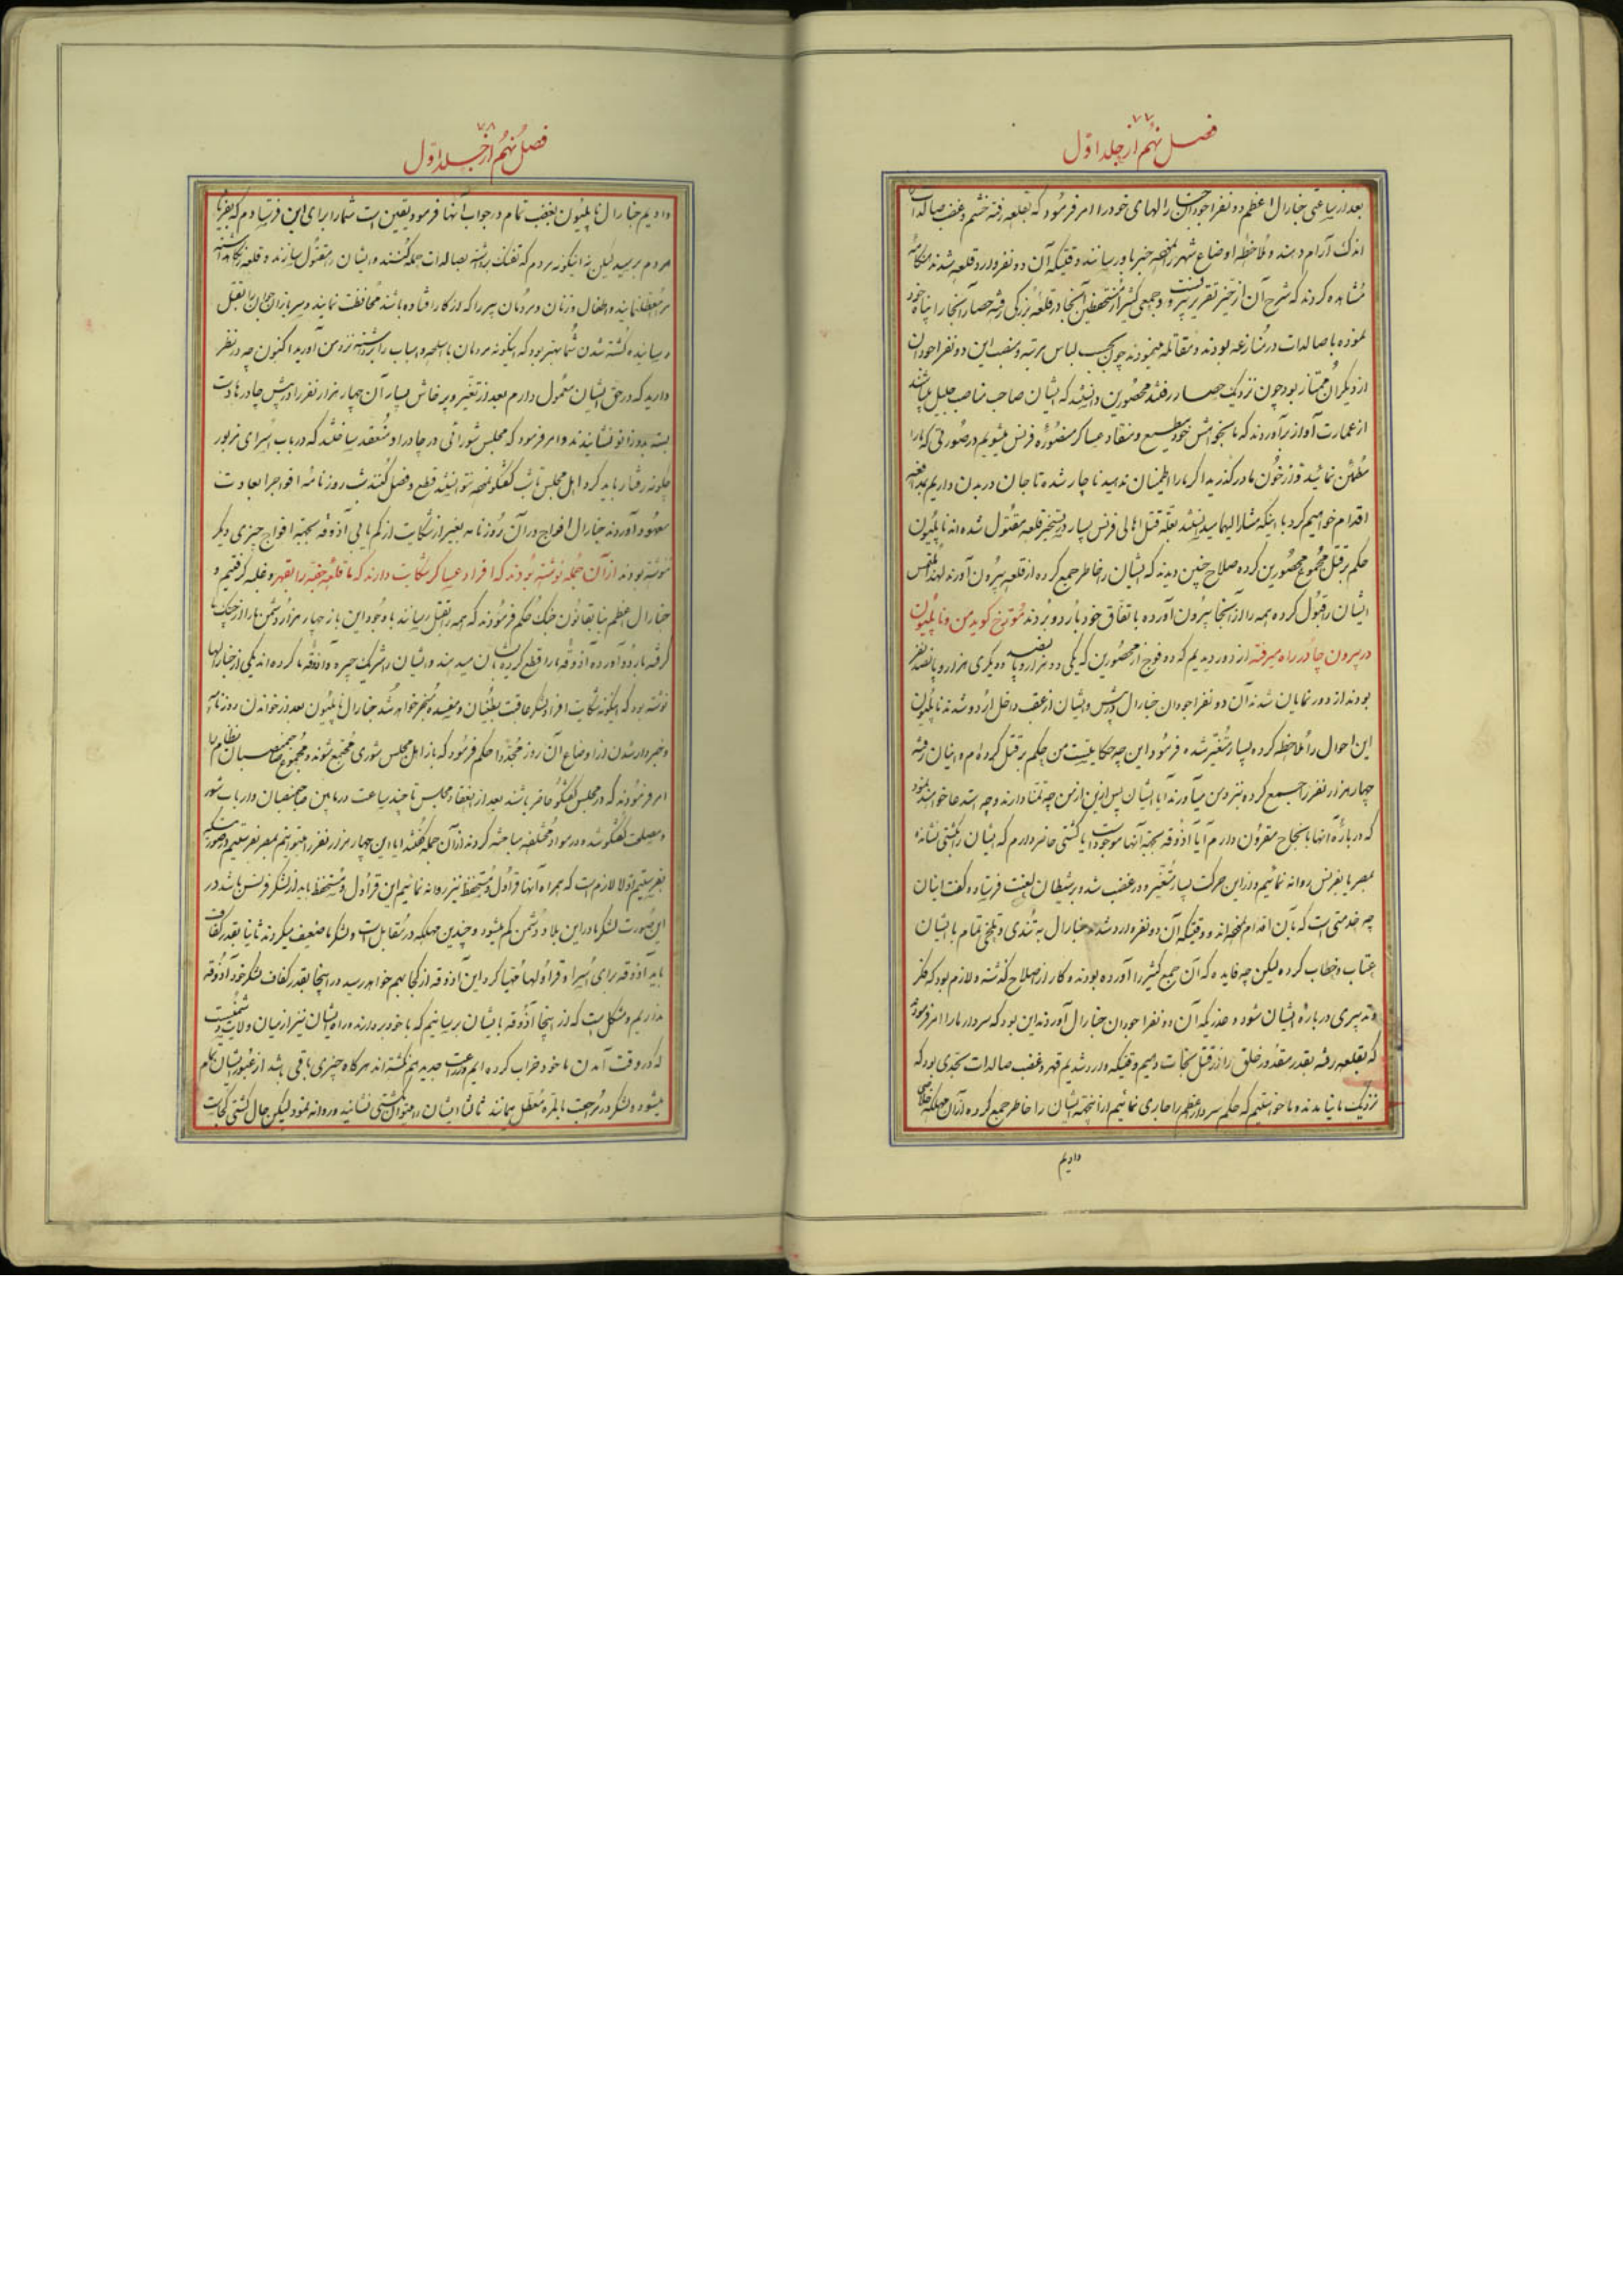 ۷۷
فصل نهم از جلد اول
بعد از ساعتی جنارال اعظم دو نفر اجودان جنارالهای خود را امر فرمود که بقلعه رفته خشم و غضب صالدات را
اندک آرام دهند و ملاحظه اوضاع شهر نموده خبر باو رسانند وقتیکه آن دو نفر وارد قلعه شدند هنگامهٔ
مشاهده کردند که شرح آن از حیز تقریر بیرونست و جمعی کثیر از مستحفظین آنجا در قلعه بزرگی رفته حصار آنجا را پناه خود
نموده با صالدات در منازعه بودند و مقاتله مینمودند چون بحسب لباس مرتبه و منصب این دو نفر اجودان
از دیگران ممتاز بود چون نزدیک حصار رفتند محصورین دانستند که ایشان صاحب مناصب جلیل میباشند
از عمارت آواز برآوردند که ما بخواهش خود مطیع و منقاد عساکر منصوره فرنس میشویم در صورتی که ما را
مطمئن نمائید و از خون ما در گذرید اگر ما را اطمینان ندهید ناچار شده تا جان در بدن داریم بمدافعه
اقدام خواهیم کرد با اینکه مشارالیهما میدانستند بعلة قتل اهالی فرنس بسیار در تسخیر قلعه مقتول شده‌اند ناپلیون
حکم بر قتل مجموع محصورین کرده صلاح چنین دیدند که ایشان را خاطر جمع کرده از قلعه بیرون آورند لهذا ملتمس
ایشان را قبول کرده همه را از آنجا بیرون آورده باتفاق خود باردو بردند مورخ کوید من و ناپلیون
در بیرون چادر راه میرفتیم از دور دیدیم که دو فوج از محصورین که یکی دو هزار و پانصد و دیگری هزار و پانصد نفر
بودند از دور نمایان شدند آن دو نفر اجودان جنارال در پیش و ایشان از عقب داخل اردو شدند ناپلیون
این احوال را ملاحظه کرده بسیار متغیر شده فرمود این چه حکایتیست من حکم بر قتل کرده‌ام و اینان رفته
چهار هزار نفر را جمع کرده بنزد من میآورند آیا ایشان پس ازین از من چه تمنا دارند و چه استدعا خواهند نمود
که درباره آنها بانجاح مقرون دارم آیا آذوقه بجهة آنها موجود است یا کشتی حاضر دارم که ایشان را بکشتی نشانده
بمصر یا بفرنس روانه نمائیم و از این حرکت بسیار متغیر و در غضب شده بر شیطان لعنت فرستاده گفت اینان
چه خدمتی است که بآن اقدام نموده‌اند و وقتیکه آن دو نفر وارد شدند جنارال به تندی و تلخی تمام با ایشان
عتاب و خطاب کرده لیکن چه فایده که آن جمع کثیر را آورده بودند و کار از اصلاح گذشته و لازم بود که فکر
و تدبیری درباره ایشان شود و عذریکه آن دو نفر اجودان جنارال آوردند این بود که سردار ما را امر فرموده
که بقلعه رفته بقدر مقدور خلق را از قتل نجات دهیم وقتیکه وارد شدیم قهر و غضب صالدات بحدی بود که
نزدیک ما نیامدند و ما خواستیم که حکم سردار اعظم را جاری نمائیم از اینجهة ایشان را خاطر جمع کرده از آن مهلکه خلاصی
دادیم
۷۸
فصل نهم از جلد اول
دادیم جنارال ناپلیون بغضب تمام در جواب آنها فرمود یقین است شما را برای این فرستادم که بفریاد
مردم برسید لیکن نه اینگونه مردم که تفنگ برداشته بصالدات حمله کنند و ایشان را مقتول سازند و قلعه را نگاهداشته
مرا معطل نمایند و اطفال و زنان و مردمان پیر را که از کار افتاده باشند محافظت نمایند و سربازان جوان را بقتل
رسانید کشته شدن شما بهتر بود که اینگونه مردمان با اسلحه و اسباب را برداشته نزد من آورید اکنون چه در نظر
دارید که در حق ایشان معمول دارم بعد از تغیر و پرخاش بسیار آن چهار هزار نفر را در پیش چادرها دست
بسته بدو زانو نشانیدند و امر فرمود که مجلس شورائی در چادر او منعقد ساختند که در باب اسرای مزبور
چگونه رفتار باید کرد اهل مجلس تا شب گفتگو نموده نتوانستند قطع و فصل کنند شب روزنامه افواج را بعادت
معهود آوردند جنارال افواج در آن روزنامه بغیر از شکایت از کم‌یابی آذوقه بجهة افواج چیزی دیگر
ننوشته بودند از آن جمله نوشته بودند که افراد عساکر شکایت دارند که ما قلعه جفه را بقهر و غلبه گرفتیم و
جنارال اعظم بنا بقانون جنک حکم فرمودند که همه را بقتل رسانند با وجود این باز چهار هزار دشمن ما را از چنک ما
گرفته باردو آورده آذوقه ما را قطع کرده بآنها میدهند و ایشان را شریک جیره و آذوقه ما کرده‌اند یکی از جنارالها
نوشته بود که اینگونه شکایت افراد لشکر عاقبت بطغیان و مفسده منجر خواهد شد جنارال ناپلیون بعد از خواندن روزنامه
و خبردار شدن از اوضاع آن روز مجددا حکم فرمود که باز اهل مجلس شوری مجتمع شوند و مجموع صاحبمنصبان نظام را
امر فرمودند که در مجلس گفتگو حاضر باشند بعد از انعقاد مجلس تا چند ساعت در مابین صاحبمنصبان و ارباب شور
و مصلحت گفتگو شد و در مواد مختلفه مباحثه کردند از آن جمله گفتند آیا این چهار هزار نفر را میتوانیم بمصر بفرستیم در صورتیکه
بفرستیم اولا لازم است که همراه آنها قراول و مستحفظ نیز روانه نمائیم این قراول و مستحفظ باید از لشکر فرنس باشد در
این صورت لشکر ما در این بلاد دشمن کم میشود و چندین مهلکه در مقابل است و لشکر ما ضعیف میگردند ثانیا بقدر کفاف
باید آذوقه برای اسرا و قراولها مهیا کرد این آذوقه از کجا بهم خواهد رسید در اینجا بقدر کفاف لشکر خود آذوقه
نداریم و مشکل است که از اینجا آذوقه بایشان برسانیم که با خود بردارند و راه ایشان نیز از میان ولایت دشمنیست
که در وقت آمدن ما خود خراب کرده‌ایم و زراعت جدید هم نکشته‌اند هرگاه چیزی باقی باشد از عبور ایشان تمام
میشود و لشکر در مراجعت بالمره معطل میمانند ثالثا ایشان را میتوان بکشتی نشانید و روانه نمود لیکن حال کشتی کجاست